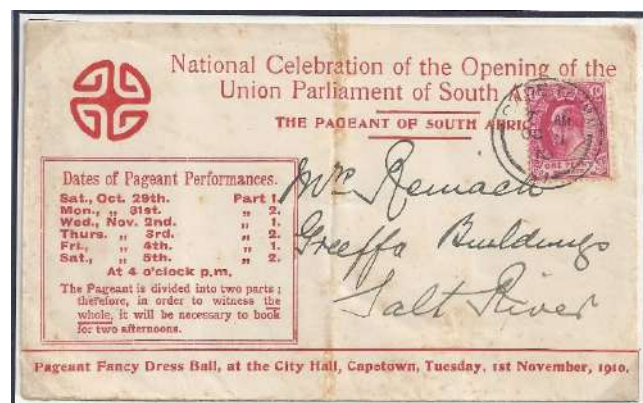 National Celebration of the Opening of the
Union Parliament of South
THE PAGEANT OF SOUTH AFRIC
ONE PENNY
Dates of Pageant Performances.
Sat., Oct. 29th. Part 1.
Mon., „ 31st. „ 2.
Wed., Nov. 2nd. „ 1.
Thurs. „ 3rd. „ 2.
Fri., „ 4th. „ 1.
Sat., „ 5th. „ 2.
At 4 o'clock p.m.
The Pageant is divided into two parts;
therefore, in order to witness the
whole, it will be necessary to book
for two afternoons.
Greeffs Buildings
Salt River
Pageant Fancy Dress Ball, at the City Hall, Capetown, Tuesday, 1st November, 1910.